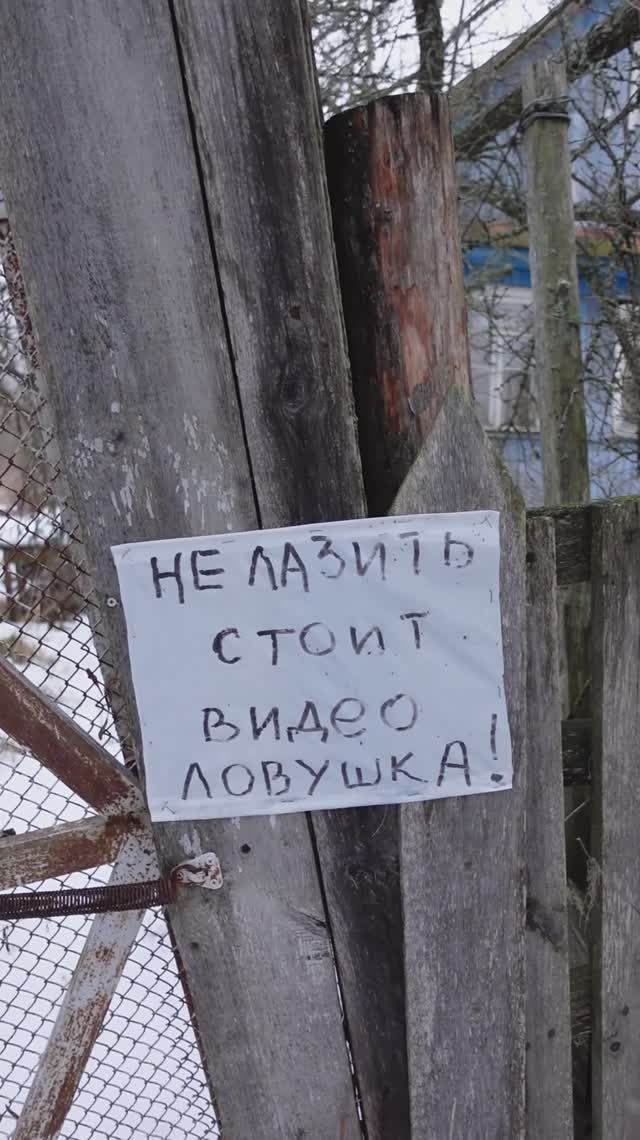 НЕ ЛАЗИТЬ
СТОИТ
ВИДеО
ЛОВУШКА!